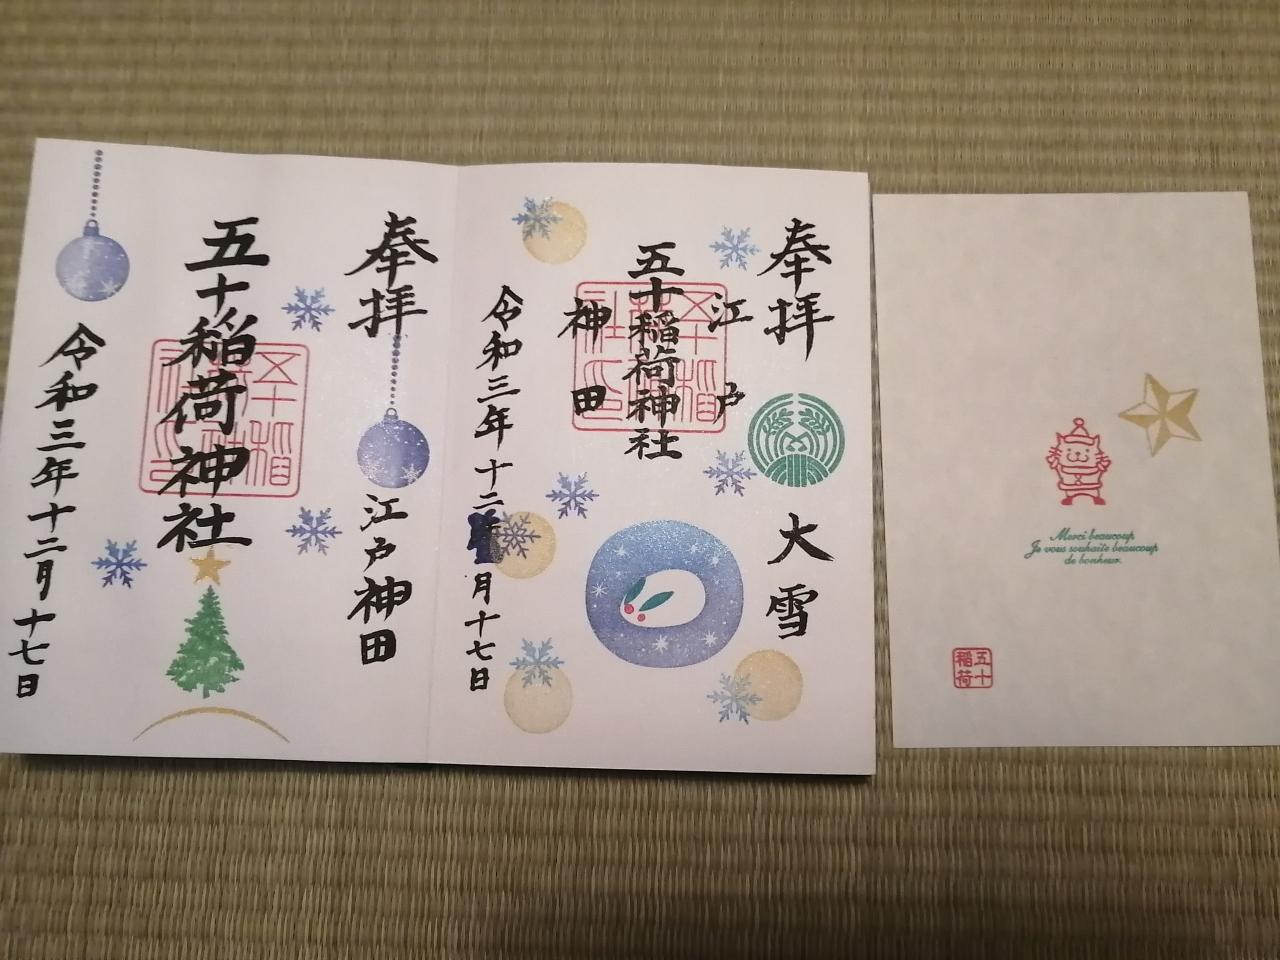 奉拝
大雪
江戸
五十稲荷神社
神田
令和三年十二月十七日
奉拝
江戸神田
五十稲荷神社
令和三年十二月十七日
Merci beaucoup
Je vous souhaite beaucoup
de bonheur.
五十
稲荷